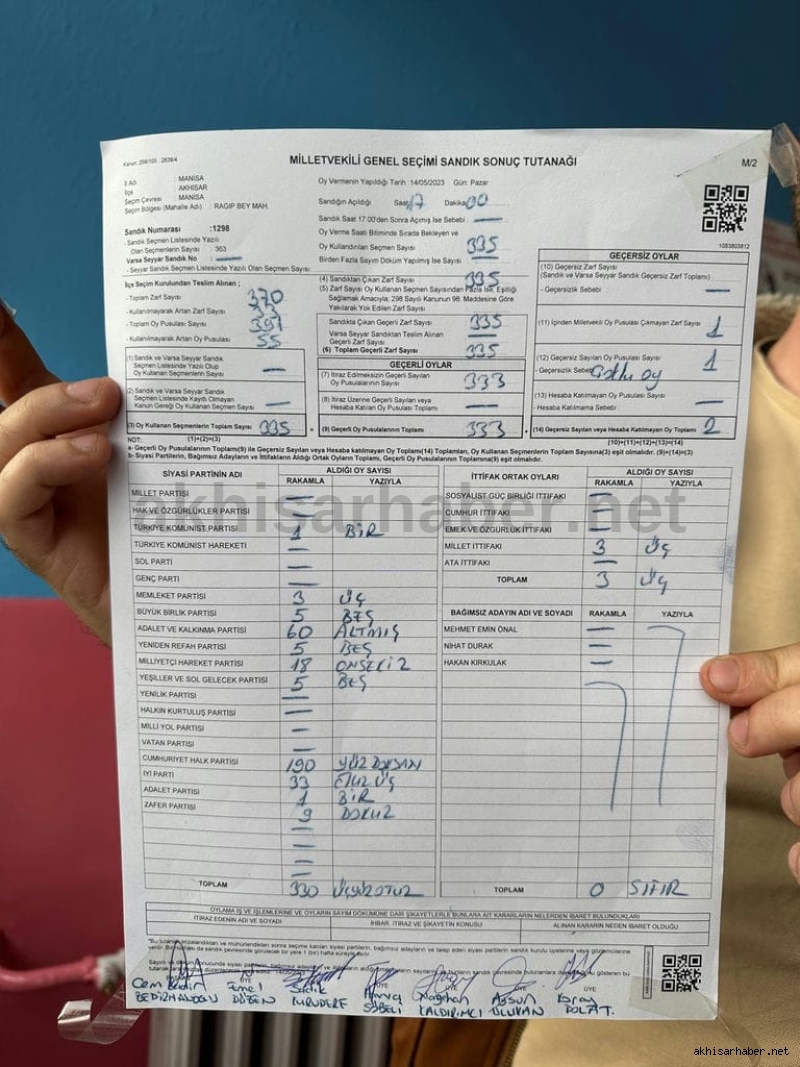 Kanun: 298/105 , 2839/4
MİLLETVEKİLİ GENEL SEÇİMİ SANDIK SONUÇ TUTANAĞI
M/2
İl Adı : MANİSA
İlçe : AKHİSAR
Seçim Çevresi : MANİSA
Seçim Bölgesi (Mahalle Adı) : RAGIP BEY MAH.
Oy Vermenin Yapıldığı Tarih :14/05/2023 Gün: Pazar
Sandığın Açıldığı Saat 17 Dakika 00
Sandık Saat 17:00'den Sonra Açımış İse Sebebi : —
1083803812
Sandık Numarası :1298
- Sandık Seçmen Listesinde Yazılı
Olan Seçmenlerin Sayısı : 363
Varsa Seyyar Sandık No : —
- Seyyar Sandık Seçmen Listesinde Yazılı Olan Seçmen Sayısı:
Oy Verme Saati Bitiminde Sırada Bekleyen ve
Oy Kullandırılan Seçmen Sayısı 335
Birden Fazla Sayım Döküm Yapılmış İse Sayısı —
İlçe Seçim Kurulundan Teslim Alınan ;
- Toplam Zarf Sayısı : 370
- Kullanılmayarak Artan Zarf Sayısı :
- Toplam Oy Pusulası Sayısı :
- Kullanılmayarak Artan Oy Pusulası : 55
(4) Sandıktan Çıkan Zarf Sayısı 335
(5) Zarf Sayısı Oy Kullanan Seçmen Sayısından Fazla İse, Eşitliği
Sağlamak Amacıyla; 298 Sayılı Kanunun 98. Maddesine Göre
Yakılarak Yok Edilen Zarf Sayısı
Sandıkta Çıkan Geçerli Zarf Sayısı 335
Varsa Seyyar Sandıktan Teslim Alınan
Geçerli Zarf Sayısı —
(6) Toplam Geçerli Zarf Sayısı 335
GEÇERSİZ OYLAR
(10) Geçersiz Zarf Sayısı
(Sandık ve Varsa Seyyar Sandık Geçersiz Zarf Toplamı)
- Geçersizlik Sebebi : —
(11) İçinden Milletvekili Oy Pusulası Çıkmayan Zarf Sayısı 1
(12) Geçersiz Sayılan Oy Pusulası Sayısı 1
- Geçersizlik Sebebi oy
(13) Hesaba Katılmayan Oy Pusulası Sayısı —
- Hesaba Katılmama Sebebi :
(14) Geçersiz Sayılan veya Hesaba Katılmayan Oy Toplamı 2
(10)+(11)+(12)+(13)=(14)
(1) Sandık ve Varsa Seyyar Sandık
Seçmen Listesinde Yazılı Olup
Oy Kullanan Seçmenlerin Sayısı —
(2) Sandık ve Varsa Seyyar Sandık
Seçmen Listesinde Kayıtlı Olmayan
Kanun Gereği Oy Kullanan Seçmen Sayısı —
(3) Oy Kullanan Seçmenlerin Toplam Sayısı 335 =
(1)+(2)=(3)
GEÇERLİ OYLAR
(7) İtiraz Edilmeksizin Geçerli Sayılan
Oy Pusulalarının Sayısı 333
(8) İtiraz Üzerine Geçerli Sayılan veya
Hesaba Katılan Oy Pusulaları Toplamı —
(9) Geçerli Oy Pusulalarının Toplamı 333 +
NOT:
a- Geçerli Oy Pusulalarının Toplamı(9) ile Geçersiz Sayılan veya Hesaba katılmayan Oy Toplamı(14) Toplamları, Oy Kullanan Seçmenlerin Toplam Sayısına(3) eşit olmalıdır. (9)+(14)=(3)
b- Siyasi Partilerin, Bağımsız Adayların ve İttifakların Aldığı Ortak Oyların Toplamı, Geçerli Oy Pusulalarının Toplamına(9) eşit olmalıdır.
SİYASİ PARTİNİN ADI
ALDIĞI OY SAYISI
RAKAMLA YAZIYLA
MİLLET PARTİSİ —
HAK VE ÖZGÜRLÜKLER PARTİSİ —
TÜRKİYE KOMÜNİST PARTİSİ 1 BİR
TÜRKİYE KOMÜNİST HAREKETİ —
SOL PARTİ —
GENÇ PARTİ —
MEMLEKET PARTİSİ 3 ÜÇ
BÜYÜK BİRLİK PARTİSİ 5 BEŞ
ADALET VE KALKINMA PARTİSİ 60 ALTMIŞ
YENİDEN REFAH PARTİSİ 5 BEŞ
MİLLİYETÇİ HAREKET PARTİSİ 18 ONSEKİZ
YEŞİLLER VE SOL GELECEK PARTİSİ 5 BEŞ
YENİLİK PARTİSİ —
HALKIN KURTULUŞ PARTİSİ —
MİLLİ YOL PARTİSİ —
VATAN PARTİSİ —
CUMHURİYET HALK PARTİSİ 190 YÜZ DOKSAN
İYİ PARTİ 33 OTUZ ÜÇ
ADALET PARTİSİ 1 BİR
ZAFER PARTİSİ 9 DOKUZ
TOPLAM 330 ÜÇYÜZOTUZ
İTTİFAK ORTAK OYLARI
ALDIĞI OY SAYISI
RAKAMLA YAZIYLA
SOSYALİST GÜÇ BİRLİĞİ İTTİFAKI —
CUMHUR İTTİFAKI —
EMEK VE ÖZGÜRLÜK İTTİFAKI —
MİLLET İTTİFAKI 3 ÜÇ
ATA İTTİFAKI —
TOPLAM 3 ÜÇ
BAĞIMSIZ ADAYIN ADI VE SOYADI RAKAMLA YAZIYLA
MEHMET EMİN ÖNAL —
NİHAT DURAK —
HAKAN KIRKULAK —
TOPLAM 0 SIFIR
OYLAMA İŞ VE İŞLEMLERİNE VE OYLARIN SAYIM DÖKÜMÜNE DAİR ŞİKAYETLERLE BUNLARA AİT KARARLARIN NELERDEN İBARET BULUNDUKLARI
İTİRAZ EDENİN ADI VE SOYADI
İHBAR, İTİRAZ VE ŞİKAYETİN KONUSU
ALINAN KARARIN NEDEN İBARET OLDUĞU
ÜYE ÜYE ÜYE ÜYE
Cem Sadık Aysun Koray
BEDİRHANOĞLU DÜZEN KURUDERE KALDIRIMCI ULUKAN POLAT.
akhisarhaber.net
akhisarhaber.net